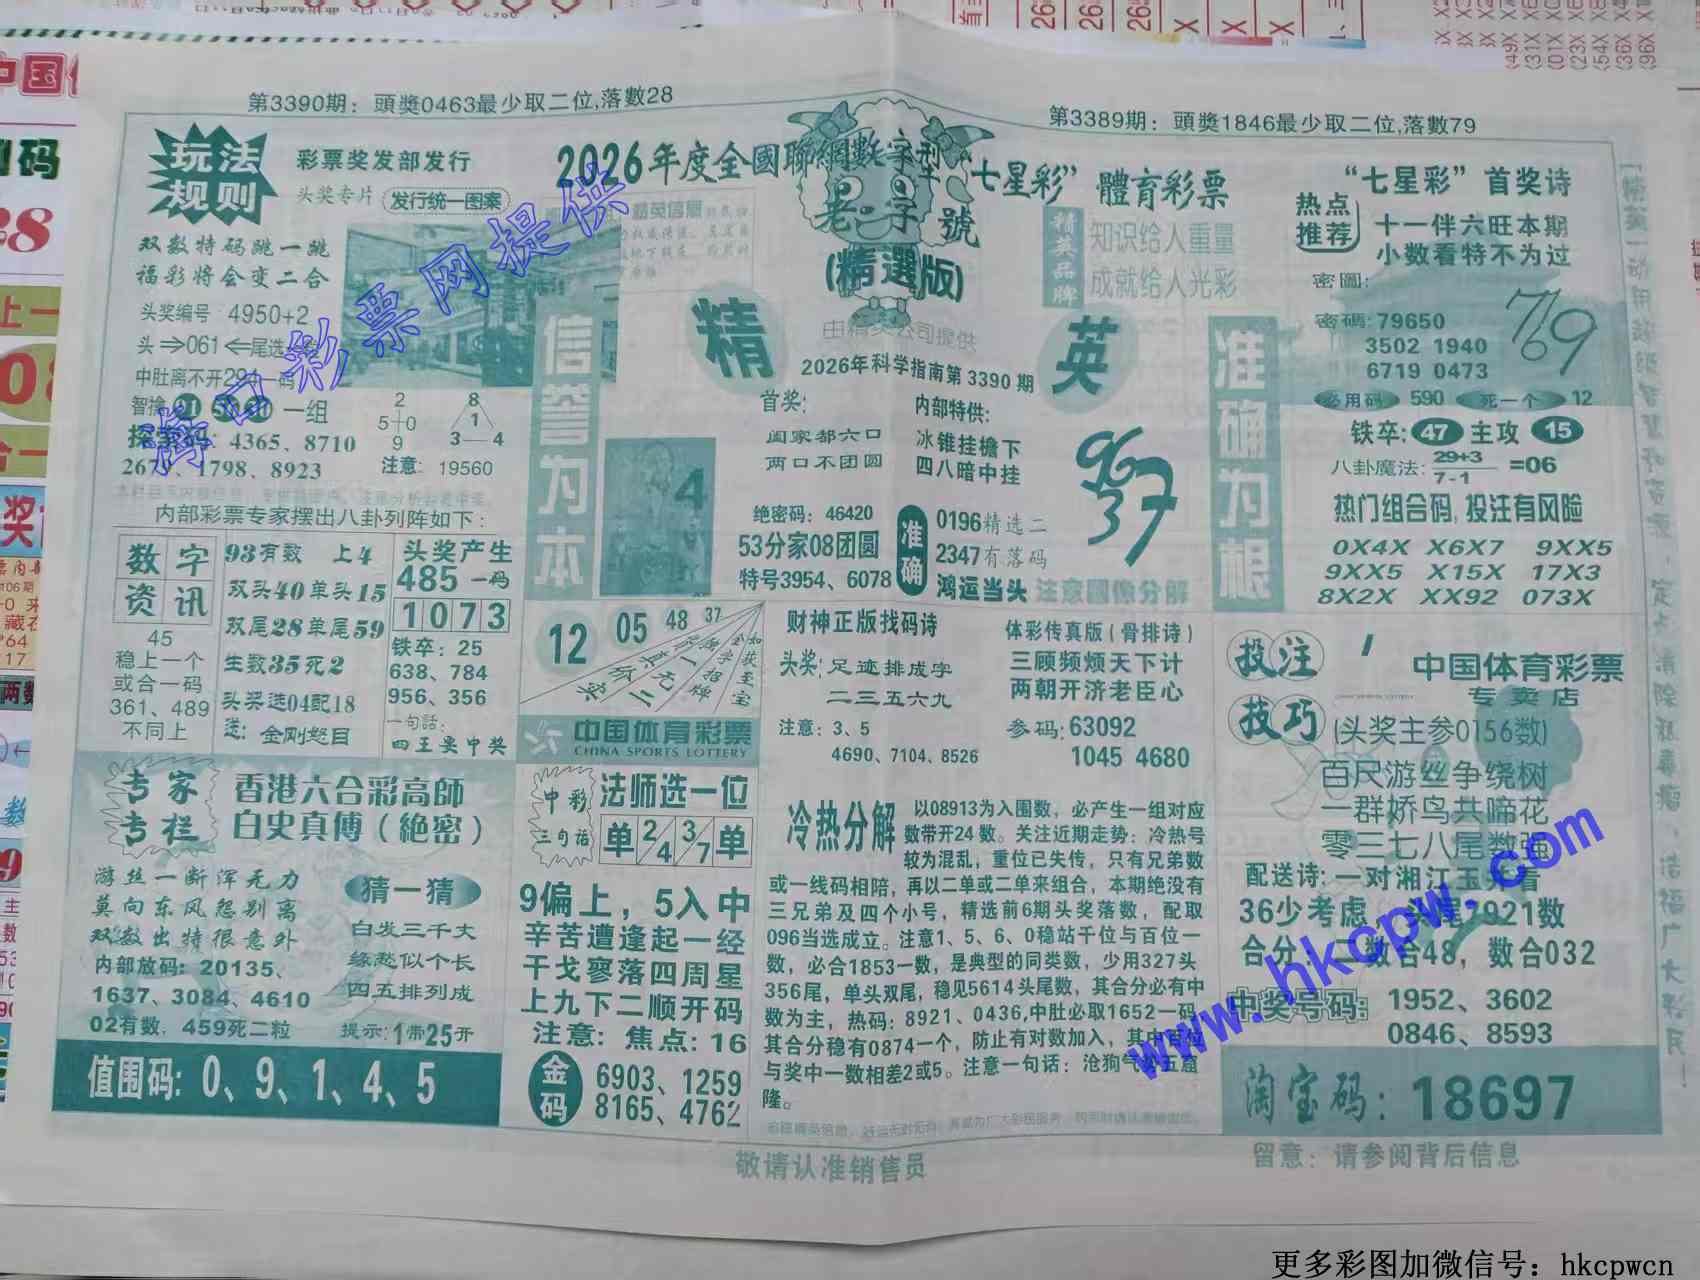 第3390期：頭獎0463最少取二位,落數28
第3389期：頭獎1846最少取二位,落數79
玩法
规则
彩票奖发部发行
头奖专片
发行统一图案
双数特码跳一跳
福彩将会变二合
头奖编号 4950+2
头⇒061⇐尾选
中肚离不开294一码
一组
4365、8710
1798、8923
2
5+0
9
8
1
3—4
注意：19560
内部彩票专家摆出八卦列阵如下：
2026年度全國聯網數字型“七星彩”體育彩票
老字號
(精選版)
精英品牌
知识给人重量
成就给人光彩
由精英公司提供
精 英
2026年科学指南第3390期
信誉为本
准确为根
首奖：
阖家都六口
两口不团圆
内部特供：
冰锥挂檐下
四八暗中挂
4
9637
绝密码：46420
53分家08团圆
特号3954、6078
准确
0196精选二
2347有落码
鸿运当头 注意圖像分解
“七星彩”首奖诗
热点
推荐
十一伴六旺本期
小数看特不为过
密圖：
769
密碼：79650
3502 1940
6719 0473
必用码 590 死一个 12
铁卒：47 主攻 15
八卦魔法：29+3/7-1=06
热门组合码,投注有风险
0X4X X6X7 9XX5
9XX5 X15X 17X3
8X2X XX92 073X
数字
资讯
45
稳上一个
或合一码
361、489
不同上
93有数 上4
双头40单头15
双尾28单尾59
生数35死2
头奖选04配18
送：金刚怒目
头奖产生
485一码
1073
铁卒：25
638、784
956、356
一句話：
四王要中奖
12 05 48 37
中国体育彩票
CHINA SPORTS LOTTERY
财神正版找码诗
头奖：足迹排成字
二三五六九
注意：3、5
4690、7104、8526
体彩传真版（骨排诗）
三顾频烦天下计
两朝开济老臣心
参码：63092
1045 4680
投注
技巧
中国体育彩票
专卖店
(头奖主参0156数)
百尺游丝争绕树
一群娇鸟共啼花
零三七八尾数强
配送诗：一对湘江玉
36少考虑
7921数
合分：二数合48，数合032
中奖号码：1952、3602
0846、8593
淘宝码：18697
专家
专栏
香港六合彩高師
白史真傳（絶密）
游丝一断浑无力
莫向东风怨别离
双数出特很意外
内部放码：20135、
1637、3084、4610
02有数，459死二粒
猜一猜
白发三千丈
缘愁似个长
四五排列成
提示：1带25开
值围码：0、9、1、4、5
中彩
三句话
法师选一位
单 2/4 3/7 单
9偏上，5入中
辛苦遭逢起一经
干戈寥落四周星
上九下二顺开码
注意：焦点：16
金码
6903、1259
8165、4762
冷热分解
以08913为入围数，必产生一组对应
数带开24数。关注近期走势：冷热号
较为混乱，重位已失传，只有兄弟数
或一线码相陪，再以二单或二单来组合，本期绝没有
三兄弟及四个小号，精选前6期头奖落数，配取
096当选成立。注意1、5、6、0稳站千位与百位一
数，必合1853一数，是典型的同类数，少用327头
356尾，单头双尾，稳见5614头尾数，其合分必有中
数为主，热码：8921、0436,中肚必取1652一码
其合分稳有0874一个，防止有对数加入，其中百位
与奖中一数相差2或5。注意一句话：沧狗气
五窟
隆。
敬请认准销售员
留意：请参阅背后信息
海口彩票网提供
www.hkcpw.com
更多彩图加微信号：hkcpwcn